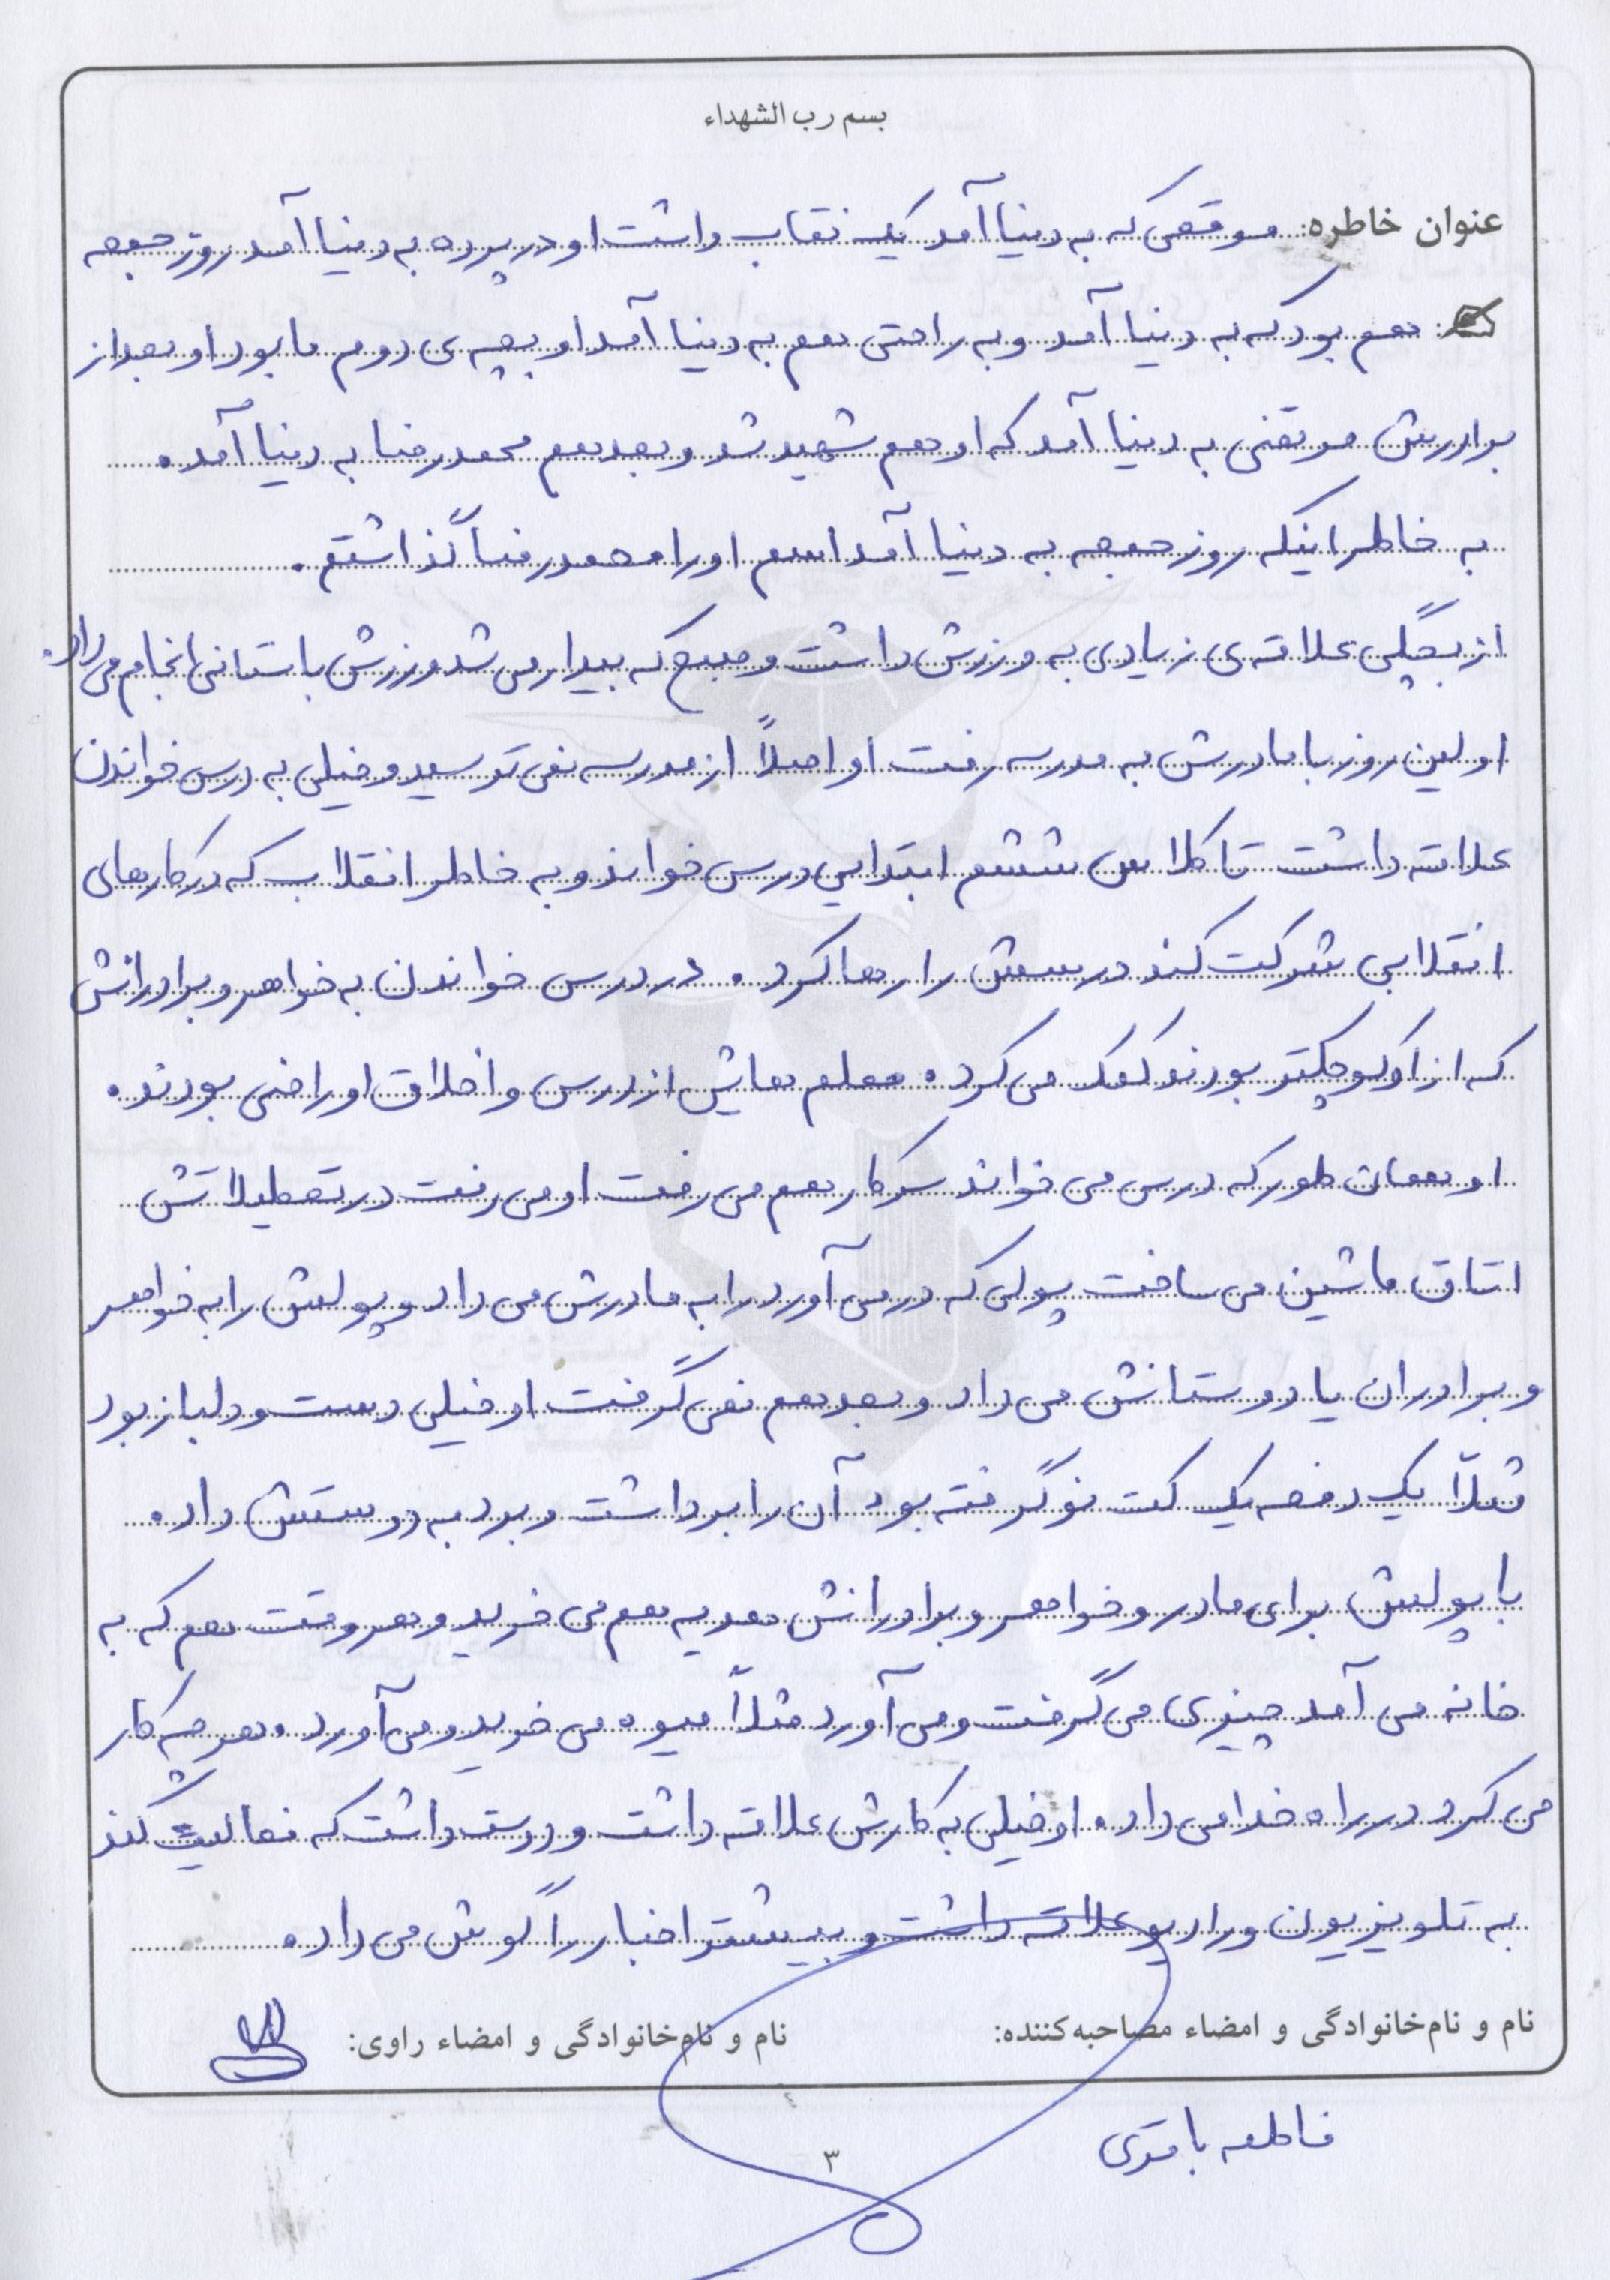 بسم رب الشهداء
عنوان خاطره: موقعی که به دنیا آمد یک نقاب داشت او در پرده به دنیا آمد روز جمعه
هم بود که به دنیا آمد و به راحتی هم به دنیا آمد او بچه ی دوم ما بود او بعد از
برادرش مرتضی به دنیا آمد که او هم شهید شد و بعد هم محمدرضا به دنیا آمد.
به خاطر اینکه روز جمعه به دنیا آمد اسم او را محمدرضا گذاشتم.
از بچگی علاقه ی زیادی به ورزش داشت و صبح که بیدار می شد ورزش باستانی انجام می داد.
اولین روز با مادرش به مدرسه رفت او اصلاً از مدرسه نمی ترسید و خیلی به درس خواندن
علاقه داشت تا کلاس ششم ابتدایی درس خواند و به خاطر انقلاب که در کارهای
انقلابی شرکت کند درسش را رها کرد. در درس خواندن به خواهر و برادرانش
که از او کوچکتر بودند کمک می کرد. معلم هایش از درس و اخلاق او راضی بودند.
او همان طور که درس می خواند سر کار هم می رفت او می رفت در تعطیلاتش
اتاق ماشین می ساخت پولی که در می آورد را به مادرش می داد و پولش را به خواهر
و برادران یا دوستانش می داد و بعد هم نمی گرفت او خیلی دست و دلباز بود
مثلاً یک دفعه یک کت نو گرفته بود آن را برداشت و برد به دوستش داد.
با پولش برای مادر و خواهر و برادرانش هدیه هم می خرید و هر وقت هم که به
خانه می آمد چیزی می گرفت و می آورد مثلاً میوه می خرید و می آورد. هر چه کار
می کرد در راه خدا می داد. او خیلی به کارش علاقه داشت و دوست داشت که فعالیت کند
به تلویزیون و رادیو علاقه داشت و بیشتر اخبار را گوش می داد.
نام و نام‌خانوادگی و امضاء مصاحبه‌کننده: نام و نام‌خانوادگی و امضاء راوی:
فاطمه باقری
۳